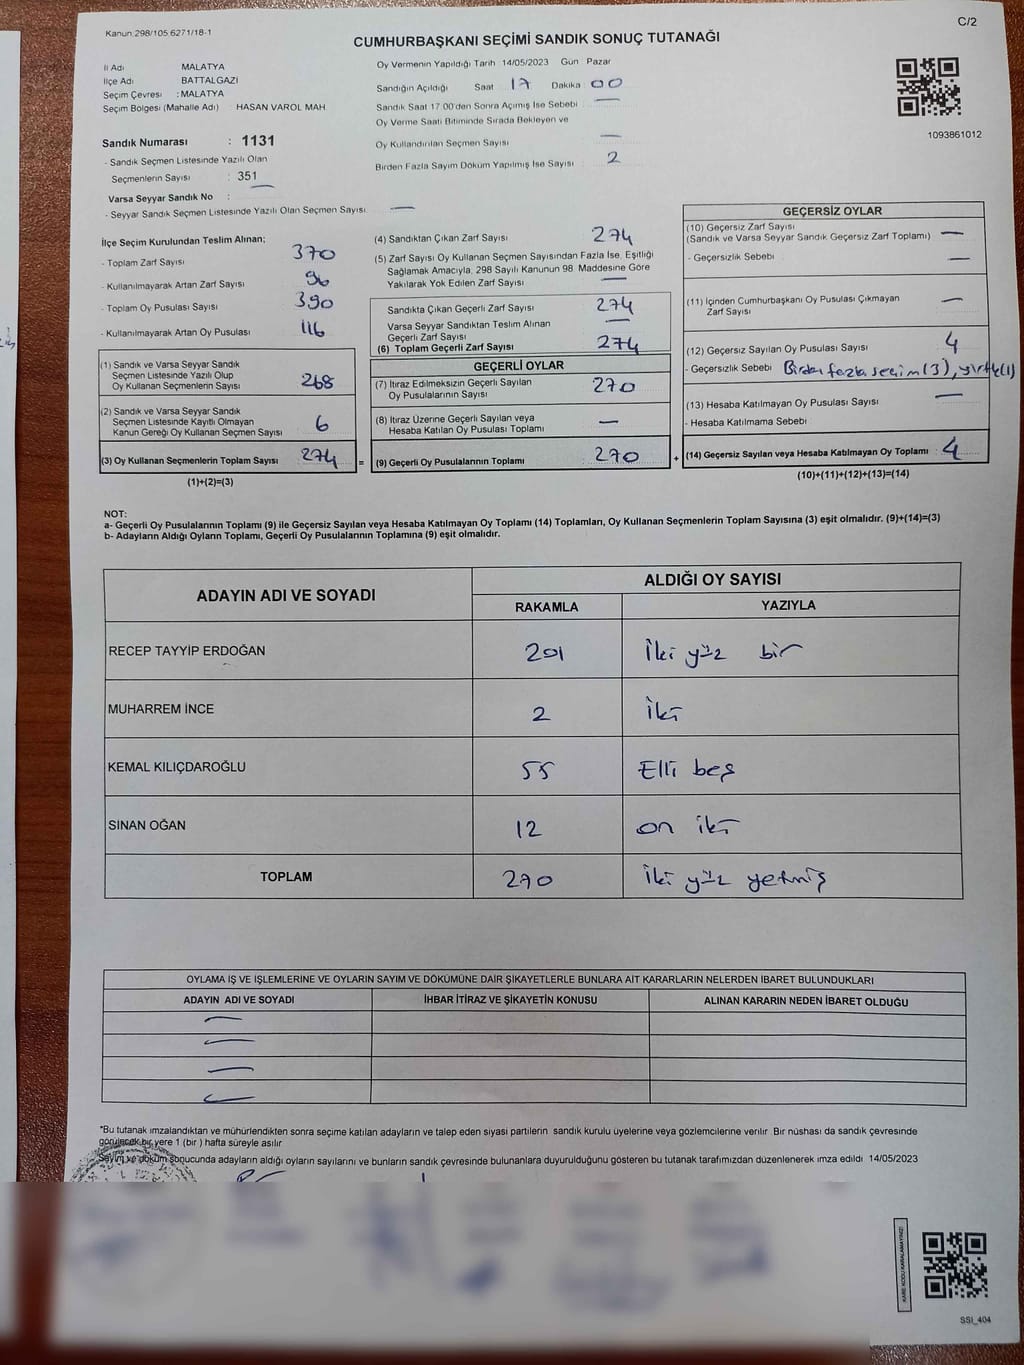 C/2
Kanun 298/105 6271/18-1
CUMHURBAŞKANI SEÇİMİ SANDIK SONUÇ TUTANAĞI
İl Adı MALATYA
İlçe Adı BATTALGAZİ
Seçim Çevresi : MALATYA
Seçim Bölgesi (Mahalle Adı) HASAN VAROL MAH
Sandık Numarası : 1131
- Sandık Seçmen Listesinde Yazılı Olan
Seçmenlerin Sayısı : 351
Varsa Seyyar Sandık No : —
- Seyyar Sandık Seçmen Listesinde Yazılı Olan Seçmen Sayısı —
Oy Vermenin Yapıldığı Tarih 14/05/2023 Gün Pazar
Sandığın Açıldığı Saat 17 Dakika 00
Sandık Saat 17.00'den Sonra Açılmış İse Sebebi —
Oy Verme Saati Bitiminde Sırada Bekleyen ve
Oy Kullandırılan Seçmen Sayısı —
Birden Fazla Sayım Döküm Yapılmış İse Sayısı 2
1093861012
İlçe Seçim Kurulundan Teslim Alınan;
- Toplam Zarf Sayısı 370
- Kullanılmayarak Artan Zarf Sayısı 96
- Toplam Oy Pusulası Sayısı 390
- Kullanılmayarak Artan Oy Pusulası 116
(1) Sandık ve Varsa Seyyar Sandık
Seçmen Listesinde Yazılı Olup
Oy Kullanan Seçmenlerin Sayısı 268
(2) Sandık ve Varsa Seyyar Sandık
Seçmen Listesinde Kayıtlı Olmayan
Kanun Gereği Oy Kullanan Seçmen Sayısı 6
(3) Oy Kullanan Seçmenlerin Toplam Sayısı 274 =
(1)+(2)=(3)
(4) Sandıktan Çıkan Zarf Sayısı 274
(5) Zarf Sayısı Oy Kullanan Seçmen Sayısından Fazla İse, Eşitliği
Sağlamak Amacıyla, 298 Sayılı Kanunun 98 Maddesine Göre
Yakılarak Yok Edilen Zarf Sayısı —
Sandıkta Çıkan Geçerli Zarf Sayısı 274
Varsa Seyyar Sandıktan Teslim Alınan
Geçerli Zarf Sayısı —
(6) Toplam Geçerli Zarf Sayısı 274
GEÇERLİ OYLAR
(7) İtiraz Edilmeksizin Geçerli Sayılan
Oy Pusulalarının Sayısı 270
(8) İtiraz Üzerine Geçerli Sayılan veya
Hesaba Katılan Oy Pusulası Toplamı —
(9) Geçerli Oy Pusulalarının Toplamı 270 +
GEÇERSİZ OYLAR
(10) Geçersiz Zarf Sayısı
(Sandık ve Varsa Seyyar Sandık Geçersiz Zarf Toplamı) —
- Geçersizlik Sebebi —
(11) İçinden Cumhurbaşkanı Oy Pusulası Çıkmayan
Zarf Sayısı —
(12) Geçersiz Sayılan Oy Pusulası Sayısı 4
- Geçersizlik Sebebi Birden fazla seçim (3), yırtık(1)
(13) Hesaba Katılmayan Oy Pusulası Sayısı —
- Hesaba Katılmama Sebebi
(14) Geçersiz Sayılan veya Hesaba Katılmayan Oy Toplamı : 4
(10)+(11)+(12)+(13)=(14)
NOT:
a- Geçerli Oy Pusulalarının Toplamı (9) ile Geçersiz Sayılan veya Hesaba Katılmayan Oy Toplamı (14) Toplamları, Oy Kullanan Seçmenlerin Toplam Sayısına (3) eşit olmalıdır. (9)+(14)=(3)
b- Adayların Aldığı Oyların Toplamı, Geçerli Oy Pusulalarının Toplamına (9) eşit olmalıdır.
ADAYIN ADI VE SOYADI ALDIĞI OY SAYISI
RAKAMLA YAZIYLA
RECEP TAYYİP ERDOĞAN 201 İki yüz bir
MUHARREM İNCE 2 İki
KEMAL KILIÇDAROĞLU 55 Elli beş
SİNAN OĞAN 12 on iki
TOPLAM 270 İki yüz yetmiş
OYLAMA İŞ VE İŞLEMLERİNE VE OYLARIN SAYIM VE DÖKÜMÜNE DAİR ŞİKAYETLERLE BUNLARA AİT KARARLARIN NELERDEN İBARET BULUNDUKLARI
ADAYIN ADI VE SOYADI İHBAR İTİRAZ VE ŞİKAYETİN KONUSU ALINAN KARARIN NEDEN İBARET OLDUĞU
—
—
—
—
*Bu tutanak imzalandıktan ve mühürlendikten sonra seçime katılan adayların ve talep eden siyasi partilerin sandık kurulu üyelerine veya gözlemcilerine verilir Bir nüshası da sandık çevresinde
görülecek bir yere 1 (bir ) hafta süreyle asılır
Sayım ve döküm sonucunda adayların aldığı oyların sayılarını ve bunların sandık çevresinde bulunanlara duyurulduğunu gösteren bu tutanak tarafımızdan düzenlenerek imza edildi 14/05/2023
KARE KODU KARALAMAYINIZ!
SSİ_404